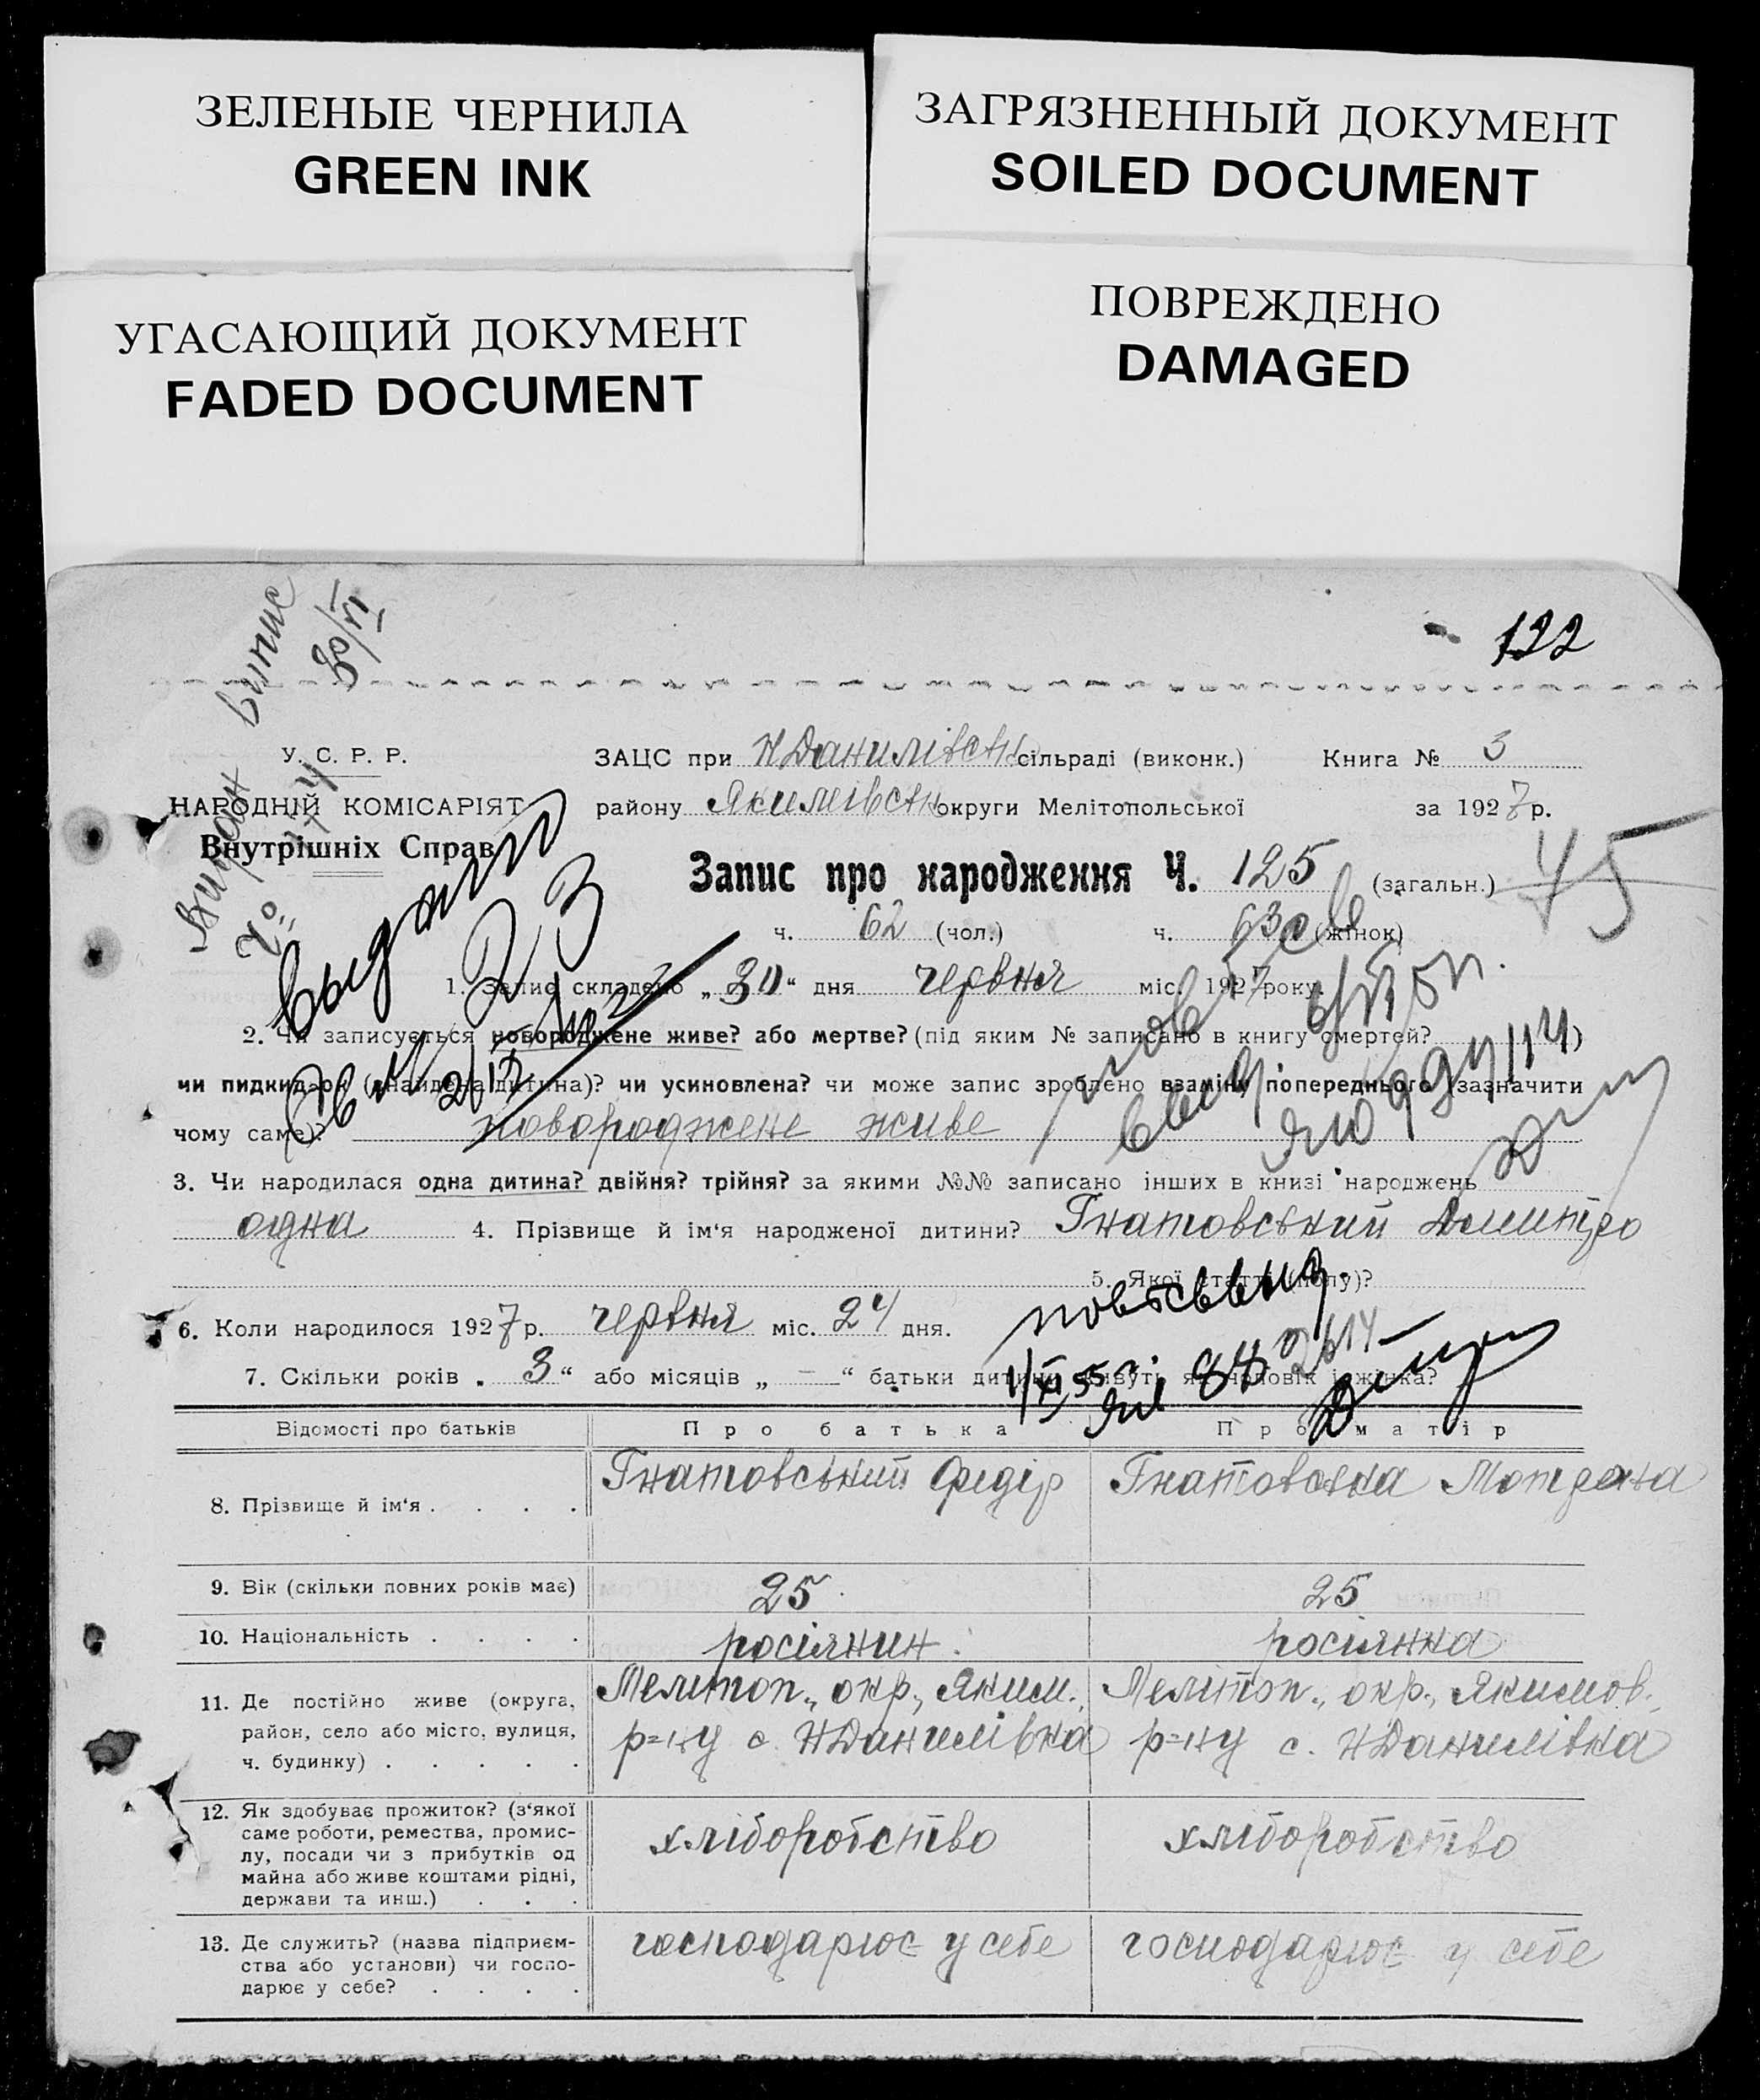 ЗЕЛЕНЫЕ ЧЕРНИЛА
GREEN INK
ЗАГРЯЗНЕННЫЙ ДОКУМЕНТ
SOILED DOCUMENT
УГАСАЮЩИЙ ДОКУМЕНТ
FADED DOCUMENT
ПОВРЕЖДЕНО
DAMAGED
122
випис
30/VI
У. С. Р. Р.
НАРОДНІЙ КОМІСАРІЯТ
Внутрішніх Справ
ЗАЦС при НДанилівськ сільраді (виконк.) Книга № 3
району Якимівськ округи Мелітопольської за 1927 р.
Запис про народження Ч. 125 (загальн.) 45
ч. 62 (чол.) ч. 63 (жінок)
выдано
1. Запис складено „30“ дня червня міс. 1927 року.
2. Чи записується новороджене живе? або мертве? (під яким № записано в книгу смертей?
чи пидкидьок (знайдена дитина)? чи усиновлена? чи може запис зроблено взаміну попереднього (зазначити
чому саме)? новороджене живе
3. Чи народилася одна дитина? двійня? трійня? за якими №№ записано інших в книзі народжень
одна 4. Прізвище й ім‘я народженої дитини? Гнатовський Дмитро
5. Якої статті (полу)?
6. Коли народилось 1927 р. червня міс. 24 дня.
7. Скільки років „3“ або місяців „—“ батьки дитини живуть як чоловік і жінка?
Відомості про батьків Про батька Про матір
8. Прізвище й ім‘я . . . . Гнатовський Федір Гнатовська Мотрона
9. Вік (скільки повних років має) 25 25
10. Національність . . . . росіянин росіянка
11. Де постійно живе (округа, район, село або місто, вулиця, ч. будинку) . . . . . Мелітоп., окр., Яким. р-ну с. НДанилівка Мелітоп., окр., Якимов. р-ну с. НДанилівка
12. Як здобуває прожиток? (з‘якої саме роботи, ремества, промислу, посади чи з прибутків од майна або живе коштами рідні, держави та инш.) . . . хліборобство хліборобство
13. Де служить? (назва підприємства або установи) чи господарює у себе? . . . . господарює у себе господарює у себе